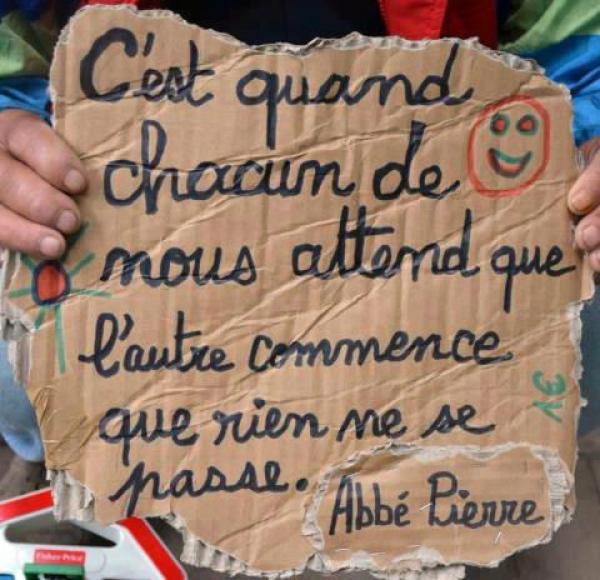 C'est quand
chacun de
nous attend que
l'autre commence
que rien ne se
passe.
Abbé Pierre
Fisher-Price